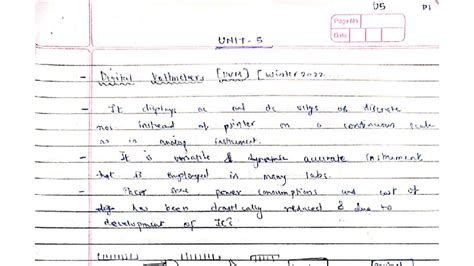 U5 P1
Page No
Date
UNIT - 5
- Digital Voltmeters [DVM] [Winter 2022
- It displays ac and dc vltgs as discrete
nos instead of pointer on a continuous scale
as in analog instrument.
- It is versatile & accurate instrument
that is employed in many labs.
- Their size power consumptions and cost of
has been drastically reduced & due to
development of ICs